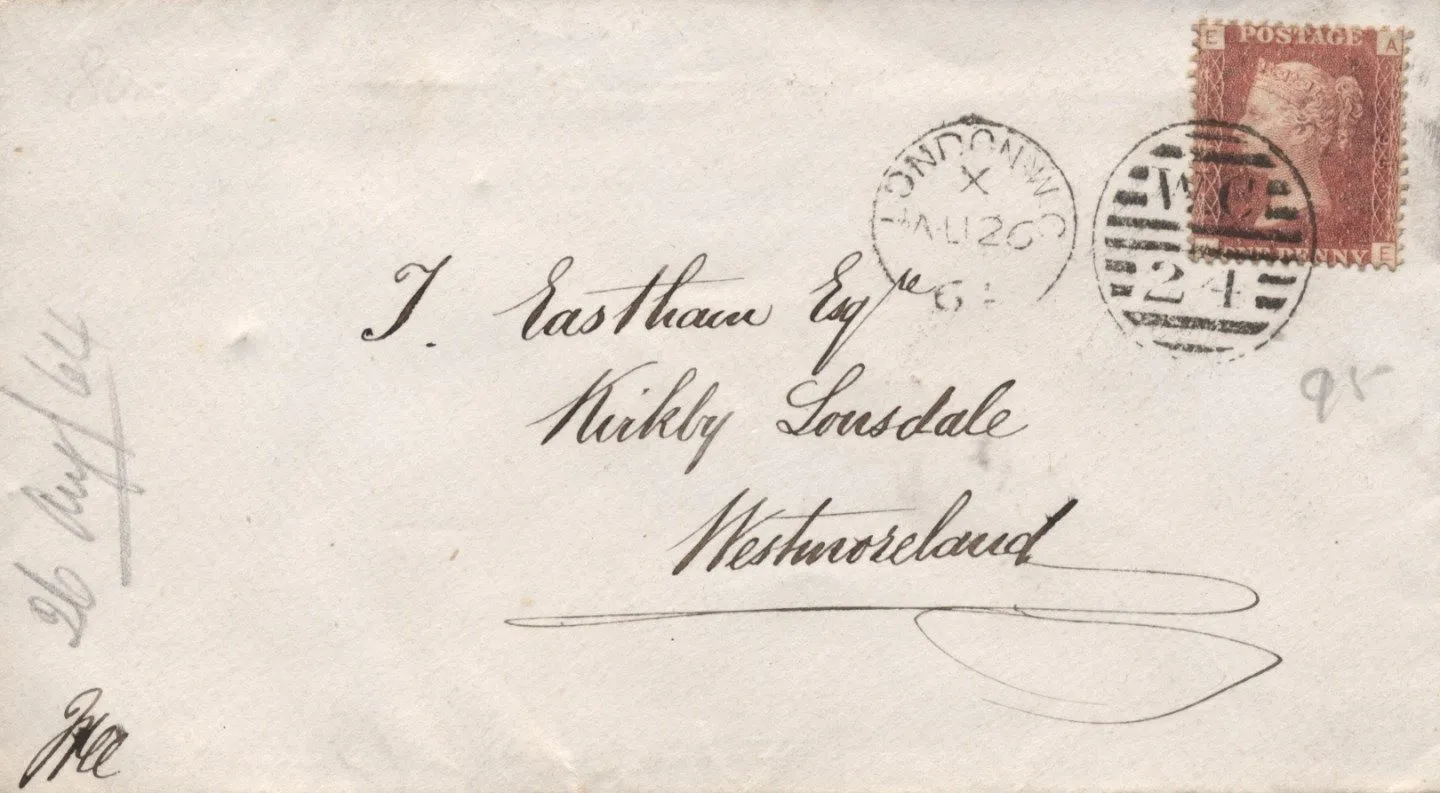 E POSTAGE A
E
PENNY
LONDON·W.C
X
AU 26
64
W.C
24
T. Eastham Esqre
Kirkby Lonsdale
Westmoreland
95
26 Aug/64
Free